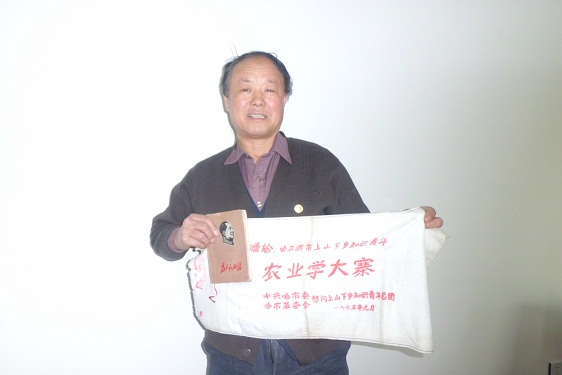 赠给 哈尔滨市上山下乡知识青年
农业学大寨
中共哈市委
哈市革委会
慰问上山下乡知识青年总团
一九七五年九月